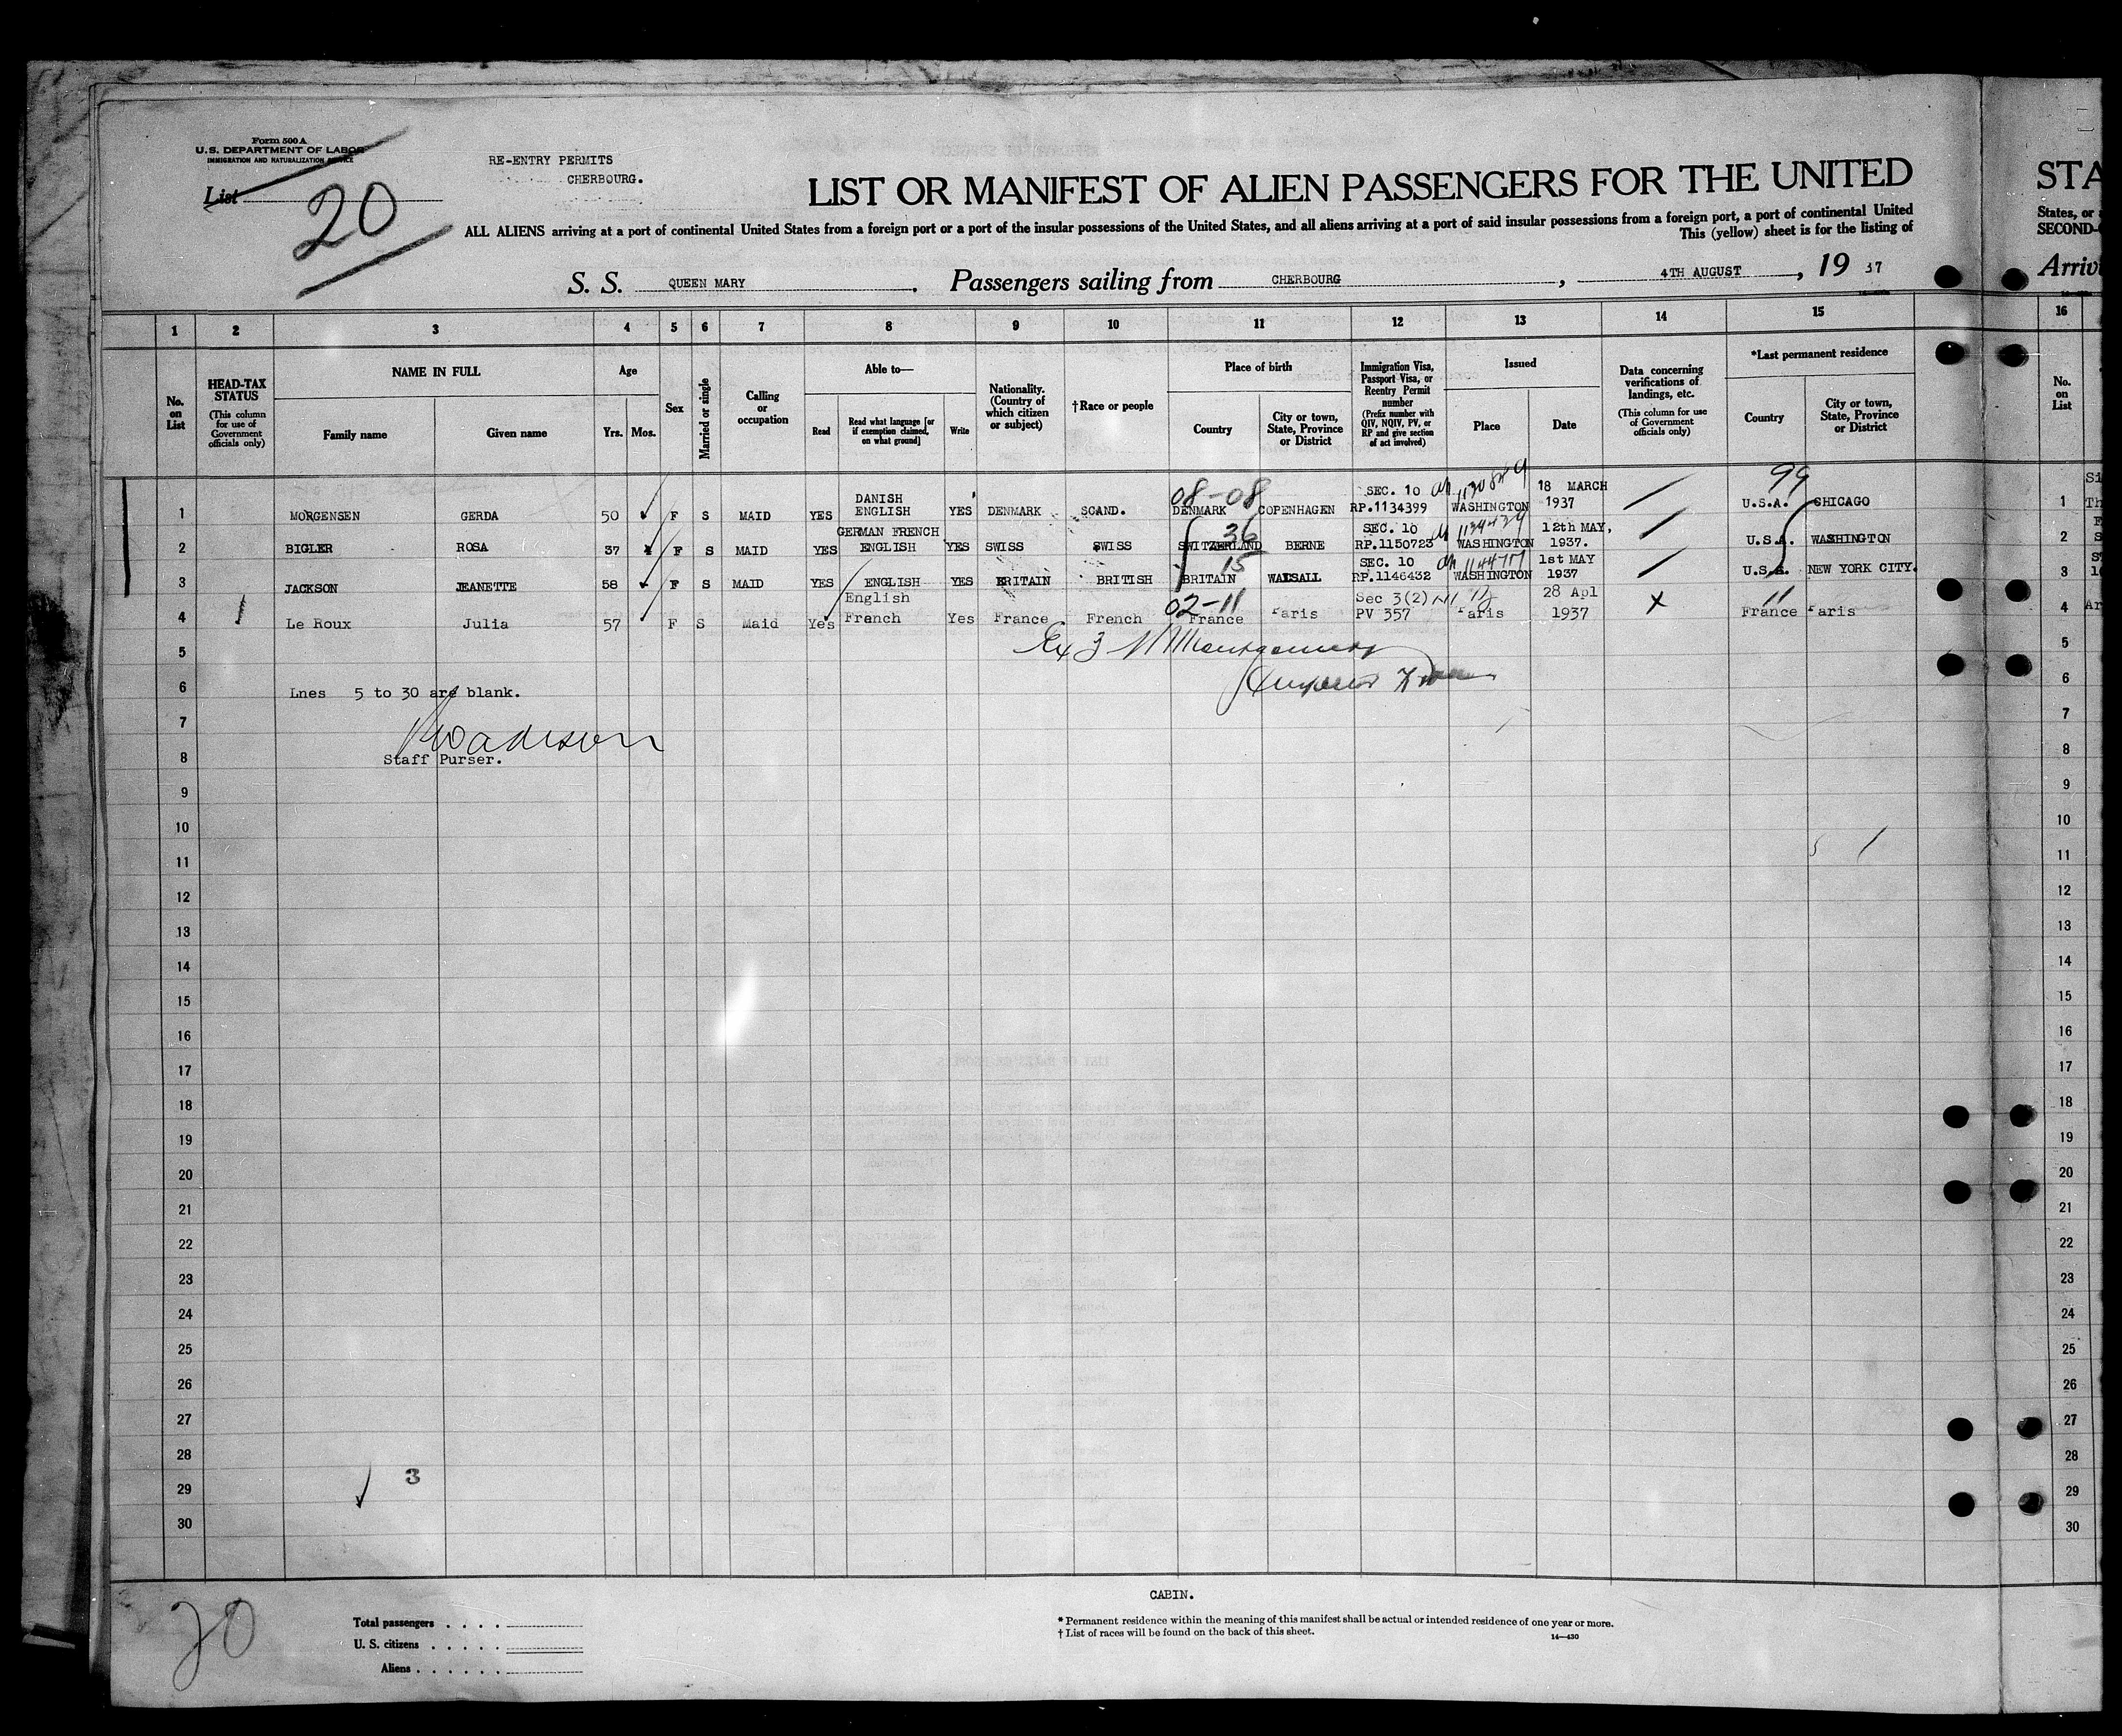 Form 500 A
U.S. DEPARTMENT OF LABOR
IMMIGRATION AND NATURALIZATION SERVICE
List
20
RE-ENTRY PERMITS
CHERBOURG.
LIST OR MANIFEST OF ALIEN PASSENGERS FOR THE UNITED
STA
ALL ALIENS arriving at a port of continental United States from a foreign port or a port of the insular possessions of the United States, and all aliens arriving at a port of said insular possessions from a foreign port, a port of continental United
States, or
This (yellow) sheet is for the listing of
SECOND-
S. S. QUEEN MARY. Passengers sailing from CHERBOURG, 4TH AUGUST, 19 37
Arriv
1 2 3 4 5 6 7 8 9 10 11 12 13 14 15 16
No. on List
HEAD-TAX STATUS
(This column for use of Government officials only)
NAME IN FULL
Family name Given name
Age
Yrs. Mos.
Sex
Married or single
Calling or occupation
Able to—
Read
Read what language [or if exemption claimed, on what ground]
Write
Nationality. (Country of which citizen or subject)
†Race or people
Place of birth
Country
City or town, State, Province or District
Immigration Visa, Passport Visa, or Reentry Permit number
(Prefix number with QIV, NQIV, PV, or RP and give section of act involved)
Issued
Place Date
Data concerning verifications of landings, etc.
(This column for use of Government officials only)
*Last permanent residence
Country
City or town, State, Province or District
No. on List
08-08 99
1 MORGENSEN GERDA 50 F S MAID YES DANISH ENGLISH YES DENMARK SCAND. DENMARK COPENHAGEN SEC. 10 RP.1134399 WASHINGTON 18 MARCH 1937 U.S.A. CHICAGO 1
36
2 BIGLER ROSA 37 F S MAID YES GERMAN FRENCH ENGLISH YES SWISS SWISS SWITZERLAND BERNE SEC. 10 RP.1150723 WASHINGTON 12th MAY, 1937. U.S.A. WASHINGTON 2
15
3 JACKSON JEANETTE 58 F S MAID YES ENGLISH YES BRITAIN BRITISH BRITAIN WALSALL SEC. 10 RP.1146432 WASHINGTON 1st MAY 1937 U.S.A. NEW YORK CITY. 3
02-11 11
4 Le Roux Julia 57 F S Maid Yes English French Yes France French France Paris Sec 3(2) PV 357 Paris 28 Apl 1937 X France Paris 4
5 Ex 3 Montgomery 5
6 Lnes 5 to 30 are blank. 6
7 7
8 Staff Purser. 8
9 9
10 10
11 11
12 12
13 13
14 14
15 15
16 16
17 17
18 18
19 19
20 20
21 21
22 22
23 23
24 24
25 25
26 26
27 27
28 28
3
29 29
30 30
20
CABIN.
Total passengers
U. S. citizens
Aliens
* Permanent residence within the meaning of this manifest shall be actual or intended residence of one year or more.
† List of races will be found on the back of this sheet.
14—430